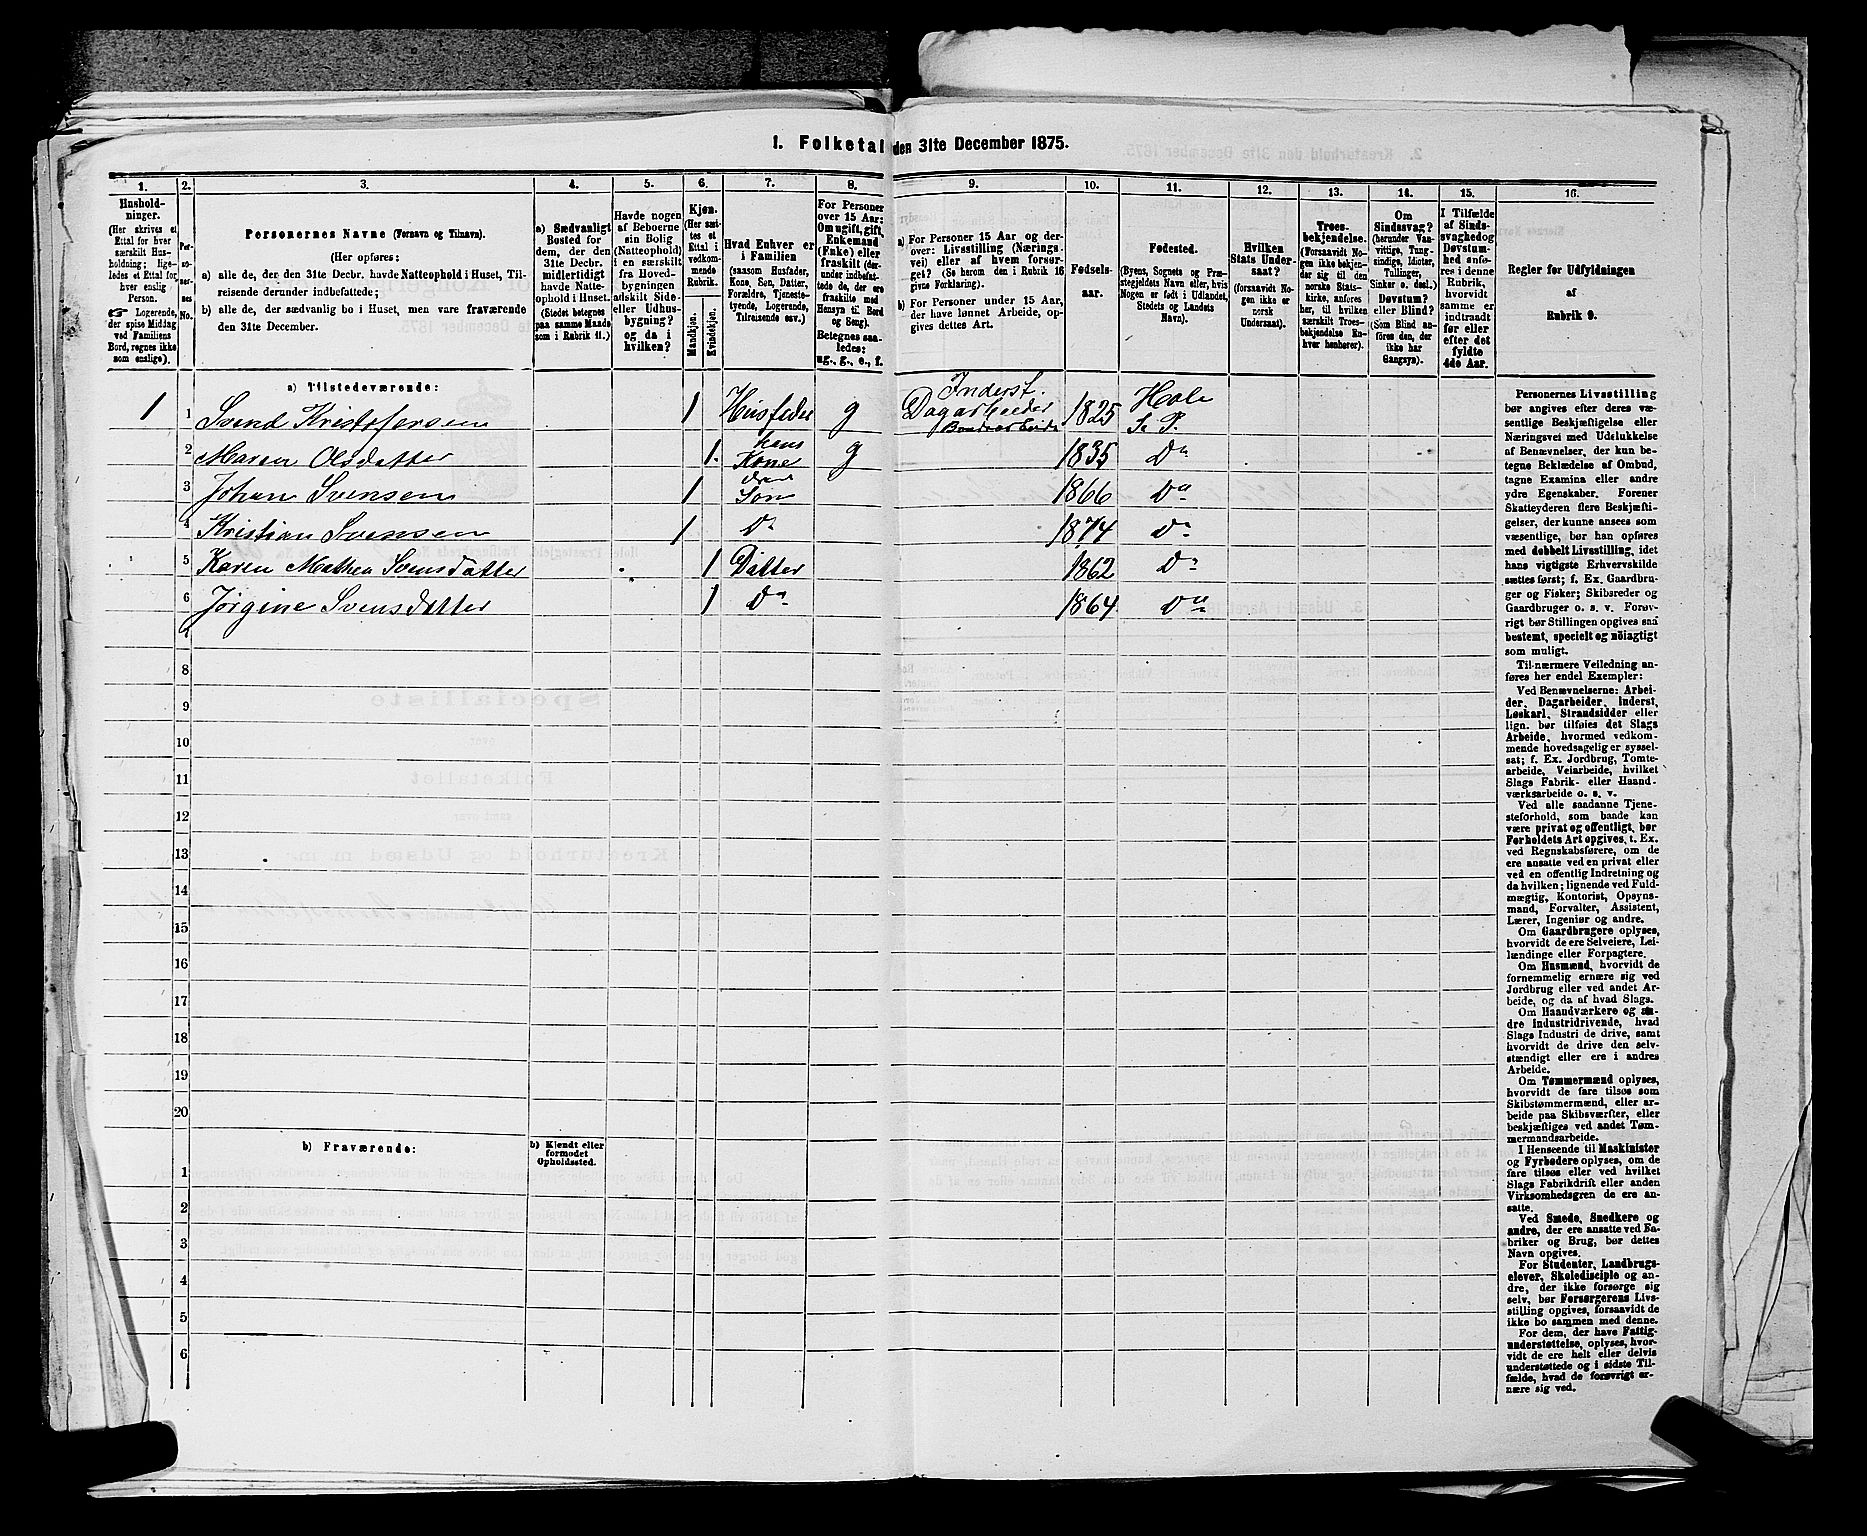 1. Folketal den 31te December 1875.
1. 2. 3. 4. 5. 6. 7. 8. 9. 10. 11. 12. 13. 14. 15. 16.
Husholdninger.
(Her skrives et
Ettal for hver
særskilt Husholdning;
ligeledes et Ettal for
hver enslig
Person.
☛ Logerende,
der spise Middag
ved Familiens
Bord, regnes ikke
som enslige).
Personernes No.
Personernes Navne (Fornavn og Tilnavn).
(Her opføres:
a) alle de, der den 31te Decbr. havde Natteophold i Huset, Tilreisende derunder indbefattede;
b) alle de, der sædvanlig bo i Huset, men vare fraværende
den 31te December.
a) Sædvanligt
Bosted for
dem, der den
31te Decbr.
midlertidigt
havde Natteophold
i Huset.
(Stedet betegnes
paa samme Maade
som i Rubrik 11.)
Havde nogen
af Beboerne
sin Bolig
(Natteophold)
i en særskilt
fra Hovedbygningen
adskilt Side-
eller Udhusbygning?
og da i
hvilken?
Kjøn.
(Her sættes
et
Ettal i
vedkommende
Rubrik.
Mandkjøn.
Kvindekjøn.
Hvad Enhver er
i Familien
(saasom Husfader,
Kone, Søn, Datter,
Forældre, Tjenestetyende,
Logerende,
Tilreisende osv.)
For Personer
over 15 Aar:
Om ugift, gift,
Enkemand
(Enke) eller
fraskilt (derunder
indbefattede
de, der ere
fraskilte med
Hensyn til Bord
og Seng).
Betegnes saaledes:
ug., g., e., f.
a) For Personer 15 Aar og derover:
Livsstilling (Næringsvei)
eller af hvem forsørget?
(Se herom den i Rubrik 16
givne Forklaring).
b) For Personer under 15 Aar,
der have lønnet Arbeide, opgives
dettes Art.
Fødselsaar.
Fødested.
(Byens, Sognets og Præstegjeldets
Navn eller, hvis
Nogen er født i Udlandet,
Stedets og Landets
Navn).
Hvilken
Stats Undersaat?
(forsaavidt Nogen
ikke er
norsk
Undersaat).
Troesbekjendelse.
(Forsaavidt Nogen
ikke bekjender
sig til den
norske Statskirke,
anføres
her, til hvilken
særskilt Troesbekjendelse
Enhver
henhører).
Om
Sindssvag?
(herunder Vanvittige,
Tungsindige,
Idioter,
Tullinger,
Sinker o. desl.)
Døvstum?
eller Blind?
(Som Blind anføres
den, der
ikke har
Gangsyn).
I Tilfælde
af Sindssvaghed
og
Døvstumhed
anføres
i denne
Rubrik,
hvorvidt
samme er
indtraadt
før eller
efter det
fyldte
4de Aar.
Regler for Udfyldningen
af
Rubrik 9.
a) Tilstedeværende:
1 1 Svend Kristofersen 1 Husfader g Inderst. Dagarbeider 1825 Hole S. P.
2 Maren Olsdatter 1. hans Kone g 1835 Do
3 Johan Svensen 1 Søn 1866 Do
4 Kristian Svensen 1 Do 1874 Do
5 Karen Mathea Svensdatter 1 Datter 1862 Do
6 Jørgine Svensdatter 1 Do 1864 Do
7
8
9
10
11
12
13
14
15
16
17
18
19
20
b) Fraværende:
b) Kjendt eller
formodet
Opholdssted.
1
2
3
4
5
6
Personernes Livsstilling
bør angives efter deres væsentlige
Beskjæftigelse eller
Næringsvei med Udelukkelse
af Benævnelser, der kun betegne
Beklædelse af Ombud,
tagne Examina eller andre
ydre Egenskaber. Forener
Skatteyderen flere Beskjæftigelser,
der kunne ansees som
væsentlige, bør han opføres
med dobbelt Livsstilling, idet
hans vigtigste Erhvervskilde
sættes først; f. Ex. Gaardbruger
og Fisker; Skibsreder og
Gaardbruger o. s. v. Forøvrigt
bør Stillingen opgives saa
bestemt, specielt og nøiagtigt
som muligt.
Til nærmere Veiledning anføres
her endel Exempler:
Ved Benævnelserne: Arbeider,
Dagarbeider, Inderst,
Løskarl, Strandsidder eller
lign. bør tilføies det Slags
Arbeide, hvormed vedkommende
hovedsagelig er sysselsat;
f. Ex. Jordbrug, Tomtearbeide,
Veiarbeide, hvilket
Slags Fabrik- eller Haandværksarbeide
o. s. v.
Ved alle saadanne Tjenesteforhold,
som baade kan
være privat og offentligt, bør
Forholdets Art opgives, t. Ex.
ved Regnskabsførere, om de
ere ansatte ved en privat eller
ved en offentlig Indretning og
da hvilken; lignende ved Fuldmægtig,
Kontorist, Opsynsmand,
Forvalter, Assistent,
Lærer, Ingeniør og andre.
Om Gaardbrugere oplyses,
hvorvidt de ere Selveiere, Leilændinge
eller Forpagtere.
Om Husmænd, hvorvidt de
fornemmelig ernære sig ved
Jordbrug eller ved andet Arbeide,
og da af hvad Slags.
Om Haandværkere og andre
Industridrivende, hvad
Slags Industri de drive, samt
hvorvidt de drive den selvstændigt
eller ere i andres
Arbeide.
Om Tømmermænd oplyses,
hvorvidt de fare tilsøs som
Skibstømmermænd, eller arbeide
paa Skibsværfter, eller
beskjæftiges ved andet Tømmermandsarbeide.
I Henseende til Maskinister
og Fyrbødere oplyses, om de
fare tilsøs eller ved hvilket
Slags Fabrikdrift eller anden
Virksomhedsgren de ere ansatte.
Ved Smede, Snedkere og
andre, der ere ansatte ved Fabriker
og Brug, bør dettes
Navn opgives.
For Studenter, Landbrugselever,
Skoledisciple og andre,
der ikke forsørge sig
selv, bør Forsørgerens Livsstilling
opgives, forsaavidt de
ikke bo sammen med denne.
For dem, der have Fattigunderstøttelse,
oplyses, hvorvidt
de ere helt eller delvis
understøttede og i sidste Tilfælde,
hvad de forøvrigt ernære
sig ved.